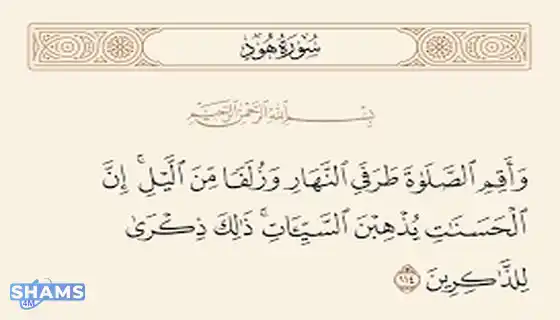 سُورَةُ هُودٍ
بِسْمِ اللَّهِ الرَّحْمَٰنِ الرَّحِيمِ
وَأَقِمِ الصَّلَوٰةَ طَرَفَيِ النَّهَارِ وَزُلَفًا مِّنَ الَّيْلِ ۚ إِنَّ
الْحَسَنَٰتِ يُذْهِبْنَ السَّيِّـَٔاتِ ۚ ذَٰلِكَ ذِكْرَىٰ
لِلذَّٰكِرِينَ ١١٤
SHAMS
4M